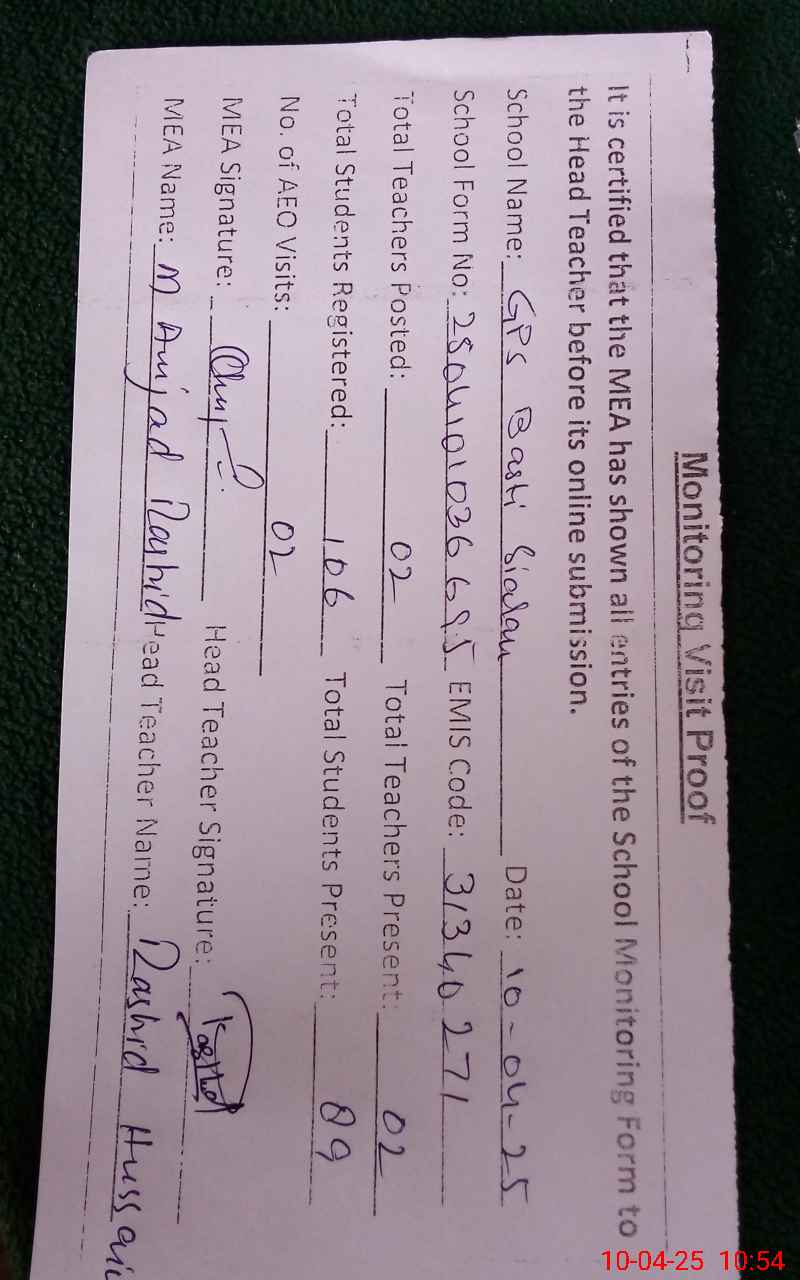 Monitoring Visit Proof
It is certified that the MEA has shown all entries of the School Monitoring Form to
the Head Teacher before its online submission.
School Name: GPS Basti Sialan Date: 10-04-25
School Form No: EMIS Code: 31340271
Total Teachers Posted: 02 Total Teachers Present: 02
Total Students Registered: 106 Total Students Present: 89
No. of AEO Visits: 02
MEA Signature: Head Teacher Signature: Rashid
MEA Name: M Amjad Rashid Head Teacher Name: Rashid Hussain
10-04-25 10:54